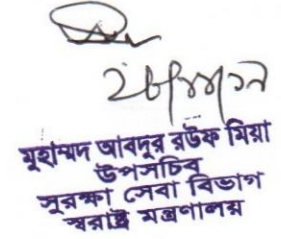 মুহাম্মদ আবদুর রউফ মিয়া
উপসচিব
সুরক্ষা সেবা বিভাগ
স্বরাষ্ট্র মন্ত্রণালয়